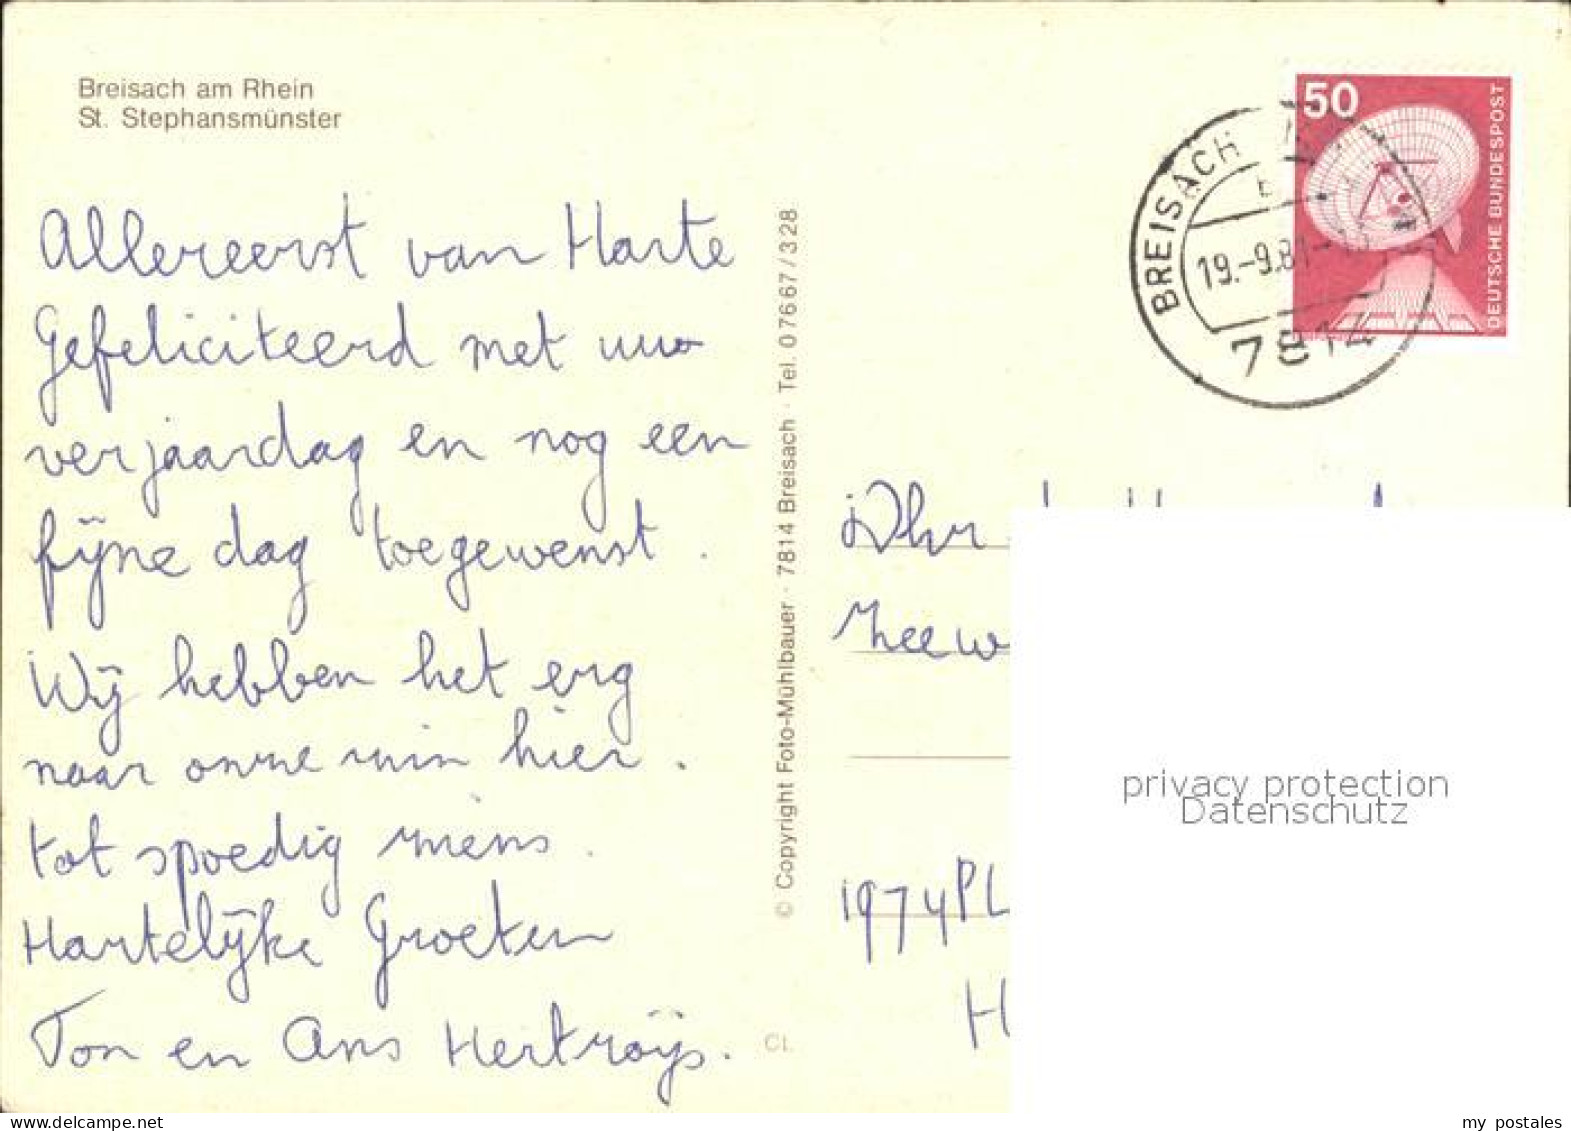 Breisach am Rhein
St. Stephansmünster
Allereerst van Harte
Gefeliciteerd met uw
verjaardag en nog een
fijne dag toegewenst.
Wij hebben het erg
naar onze zin hier.
tot spoedig ziens.
Hartelijke Groeten
Ton en Ans Hertroijs.
© Copyright Foto-Mühlbauer · 7814 Breisach · Tel. 07667/328
CL
50
DEUTSCHE BUNDESPOST
BREISACH
19.-9.81-
7814
Zeew
1974PL
H
privacy protection
Datenschutz
delcampe.net
my_postales